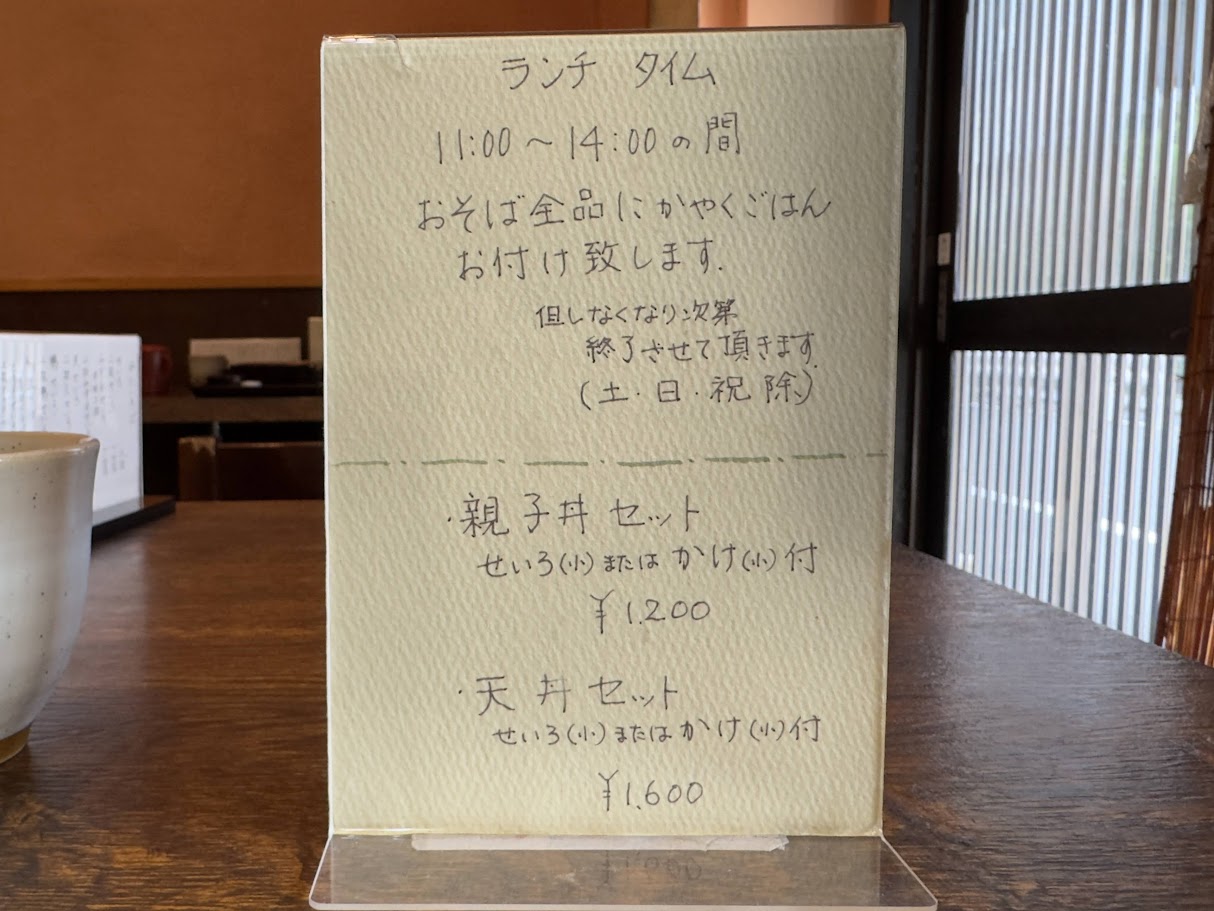 ランチ タイム
11:00～14:00の間
おそば全品にかやくごはん
お付け致します.
但しなくなり次第
終了させて頂きます.
(土・日・祝 除)
・親子丼セット
せいろ(小)またはかけ(小)付
¥1.200
・天丼セット
せいろ(小)またはかけ(小)付
¥1.600